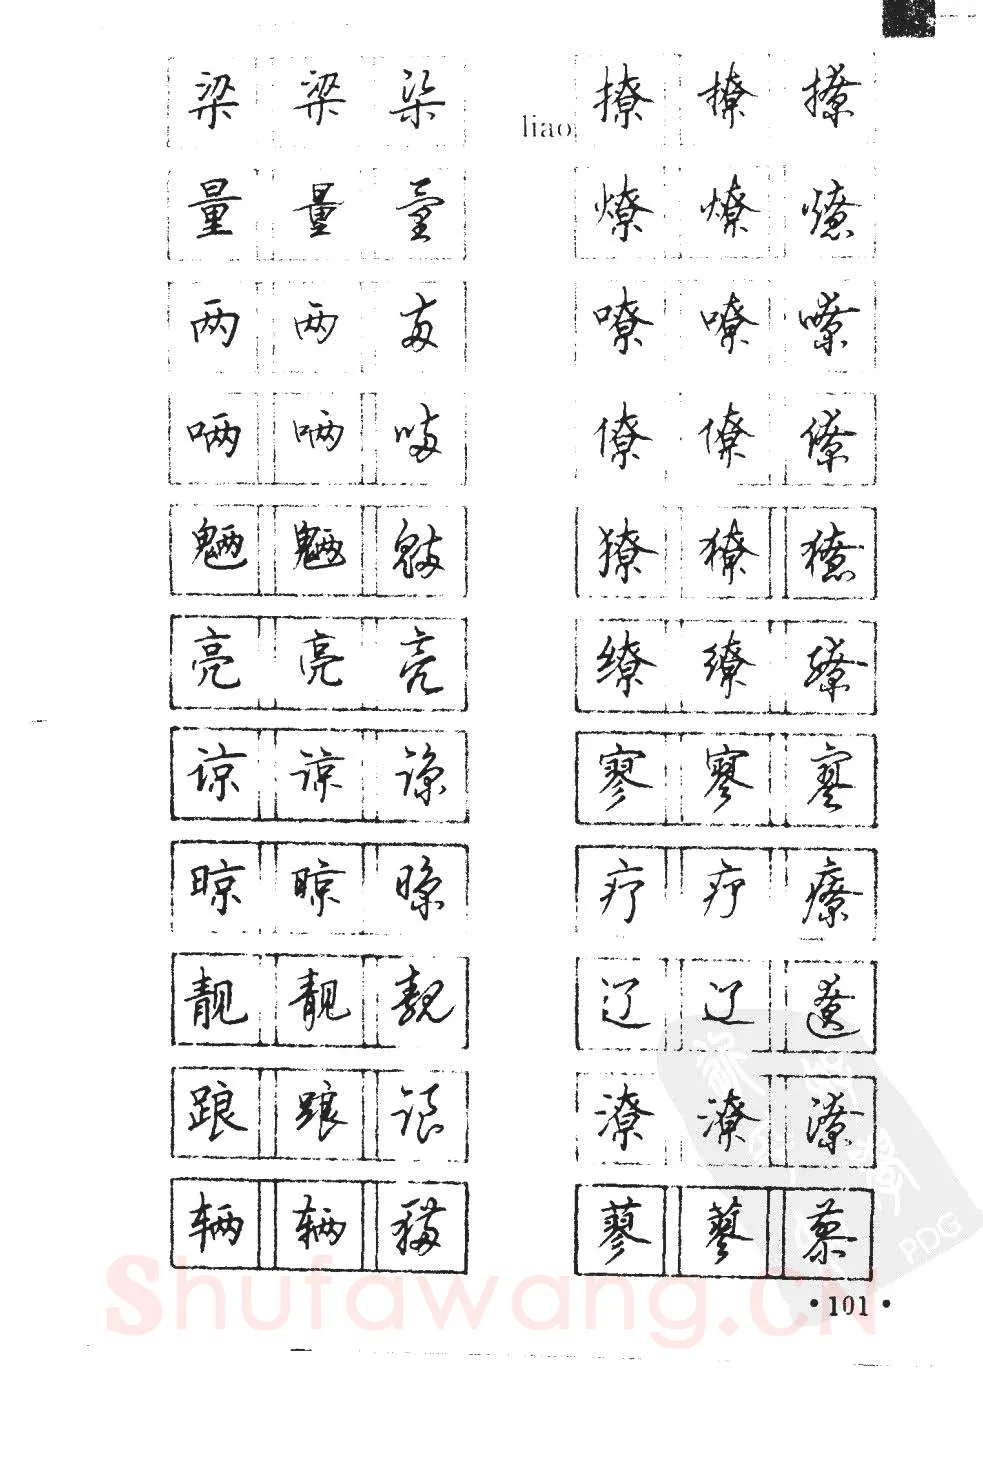 梁 梁 梁
量 量 量
两 两 两
唡 唡 唡
魉 魉 魉
亮 亮 亮
谅 谅 谅
晾 晾 晾
靓 靓 靓
踉 踉 踉
辆 辆 辆
liao
撩 撩 撩
燎 燎 燎
嘹 嘹 嘹
僚 僚 僚
獠 獠 獠
缭 缭 缭
寥 寥 寥
疗 疗 療
辽 辽 遼
潦 潦 潦
蓼 蓼 蓼
·101·
Shufawang.CN
PDG